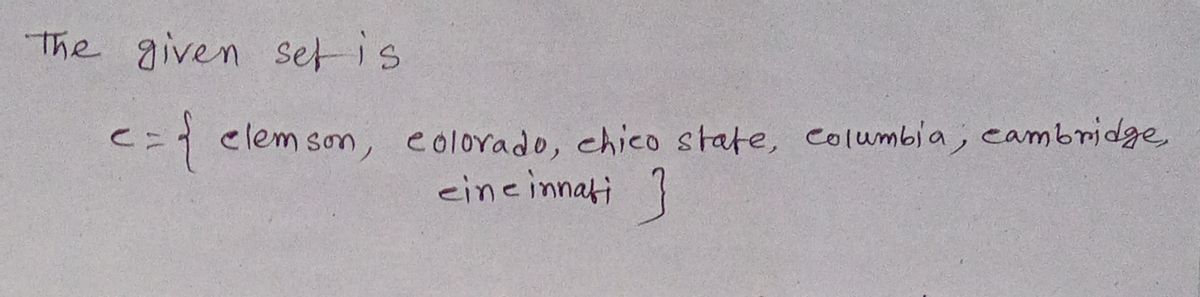 The given set is
c = { clemson, colorado, chico state, columbia, cambridge,
cincinnati }